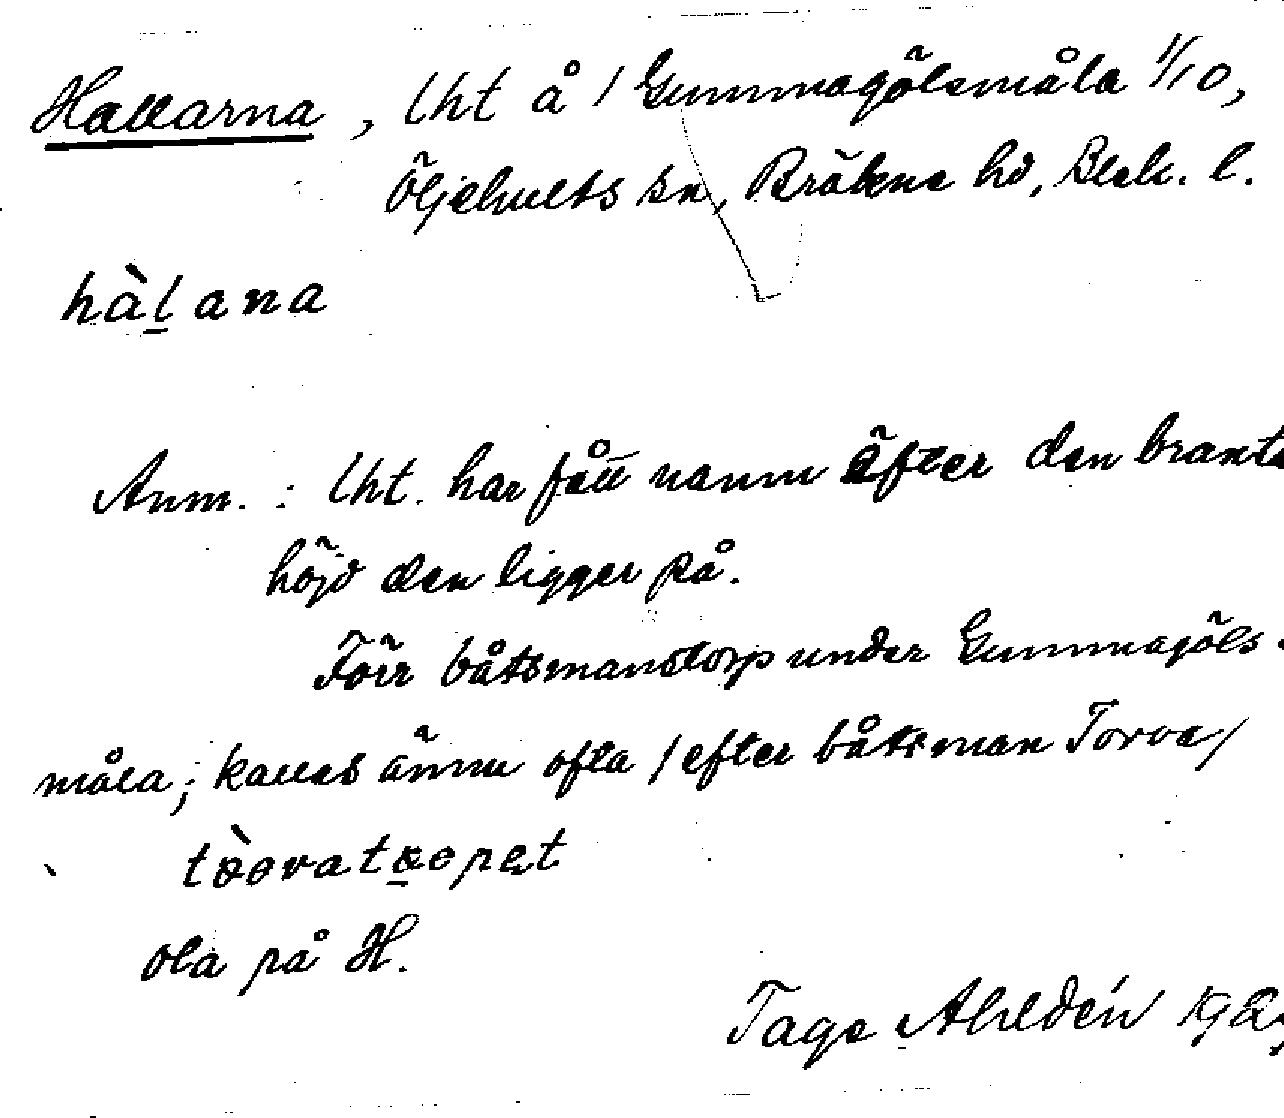 Hallarna, lht å 1 Gummagölsmåla 1/10,
Öljehults sn, Bräkne hd, Blek. l.
hàl̲ana
Anm. : lht. har fått namn äfter den branta
höjd den ligger på.
Förr båtsmanstorp under Gummagöls-
måla; kallas ännu ofta /efter båtsman Torva/
ola på H.
Tage Ahldén